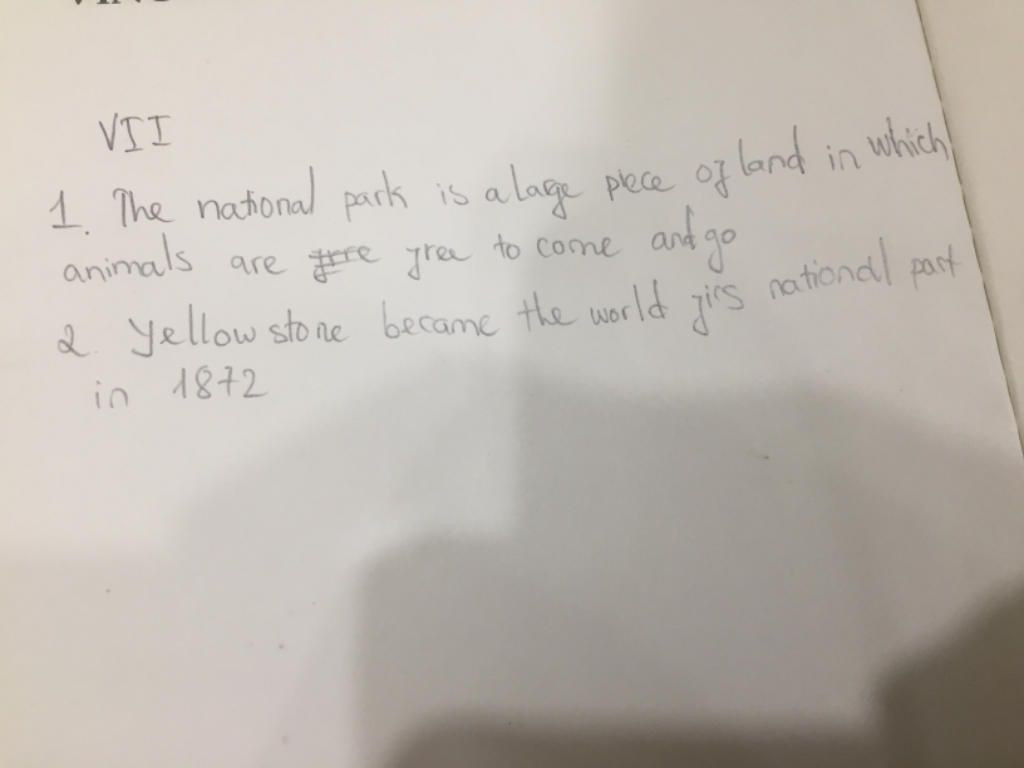 VII
1. The national park is a lage piece of land in which
animals are free to come and go
2. Yellow stone became the world firs national part
in 1872